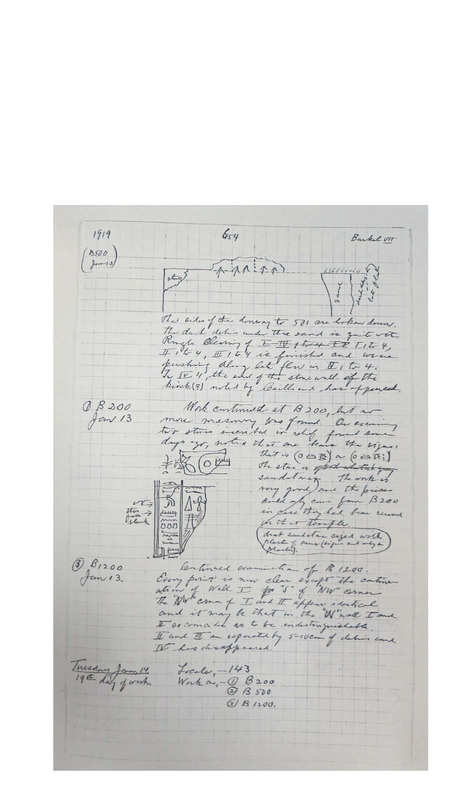 1919 654 Barkal VII
(B500 Jan 13)
stone
sand
The sides of the doorway to 501 are broken down.
The dark debris under the sand is quite wet.
Rough Clearing of I 1 to 4,
II 1 to 4, III 1 to 4 is finished and we are
pushing along late floor in II 1 to 4.
In IV 4, the end of the stone wall of the
kiosk(?) noted by Cailliaud has appeared.
① B 200
Jan 13
Work continued at B 200, but no
more masonry was found. On examining
two stones inscribed in relief found some
days ago, noted that one bears the signs:
that is
The stone is
sandstone. The work is
very good and the pieces
came from B200
in case they had been reused
in that temple.
③ B1200
Jan 13.
Continued examination of B 1200.
Every point is now clear except the continu-
ation of Wall I to "S" of "NW" corner
the "NW" corner of I and II appear identical
and it may be that in the "W" wall I and
II so coincided as to be indistinguishable.
II and III are separated by 5-10cm of debris and
IV has disappeared.
Tuesday Jan 14
19th day of work.
Locals, - 143
Work on, - ① B 200
② B 500
③ B 1200.